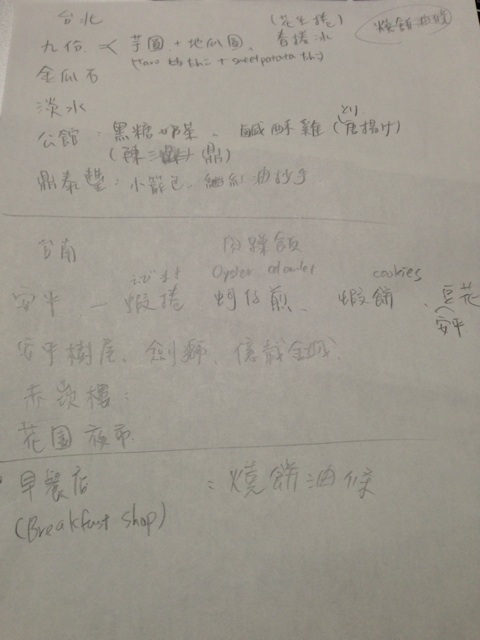 台北 (花生捲) 燒餅油條
九份 < 芋圓 + 地瓜圓、香搓冰
(taro + sweet potato)
金瓜石
淡水
公館: 黑糖奶茶、鹹酥雞 (とり 唐揚げ)
(陳三鼎)
鼎泰豐: 小籠包、紅油抄手
台南 肉躁飯
えびまき Oyster omelet cookies
安平 — 蝦捲 蚵仔煎、蝦餅、豆花
安平
安平樹屋、劍獅、億載金城
赤崁樓:
花园夜市
早餐店 : 燒餅油條
(Breakfast shop)